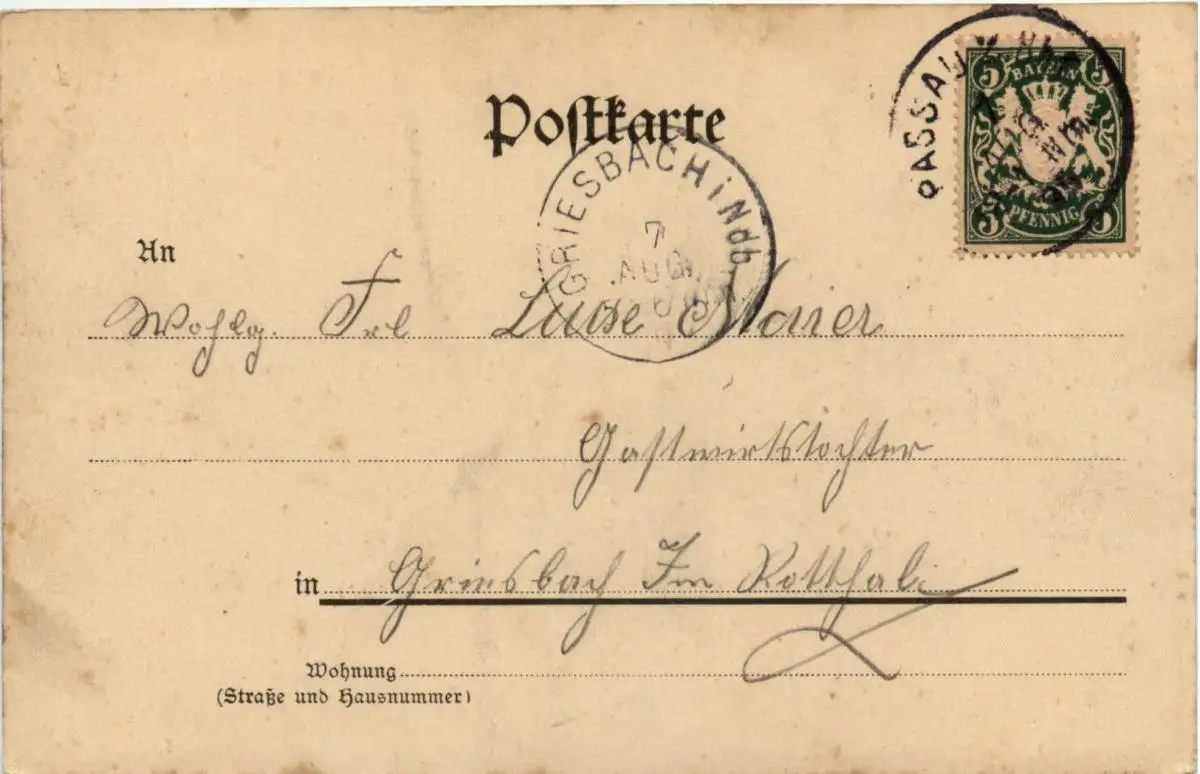 Postkarte
PASSAU
5 BAYERN 5
5 PFENNIG 5
GRIESBACH i Ndb
7
AUG
An
Wohlg. Frl Luise Maier
Gastwirtstochter
in Griesbach Im Rotthale
Wohnung
(Straße und Hausnummer)